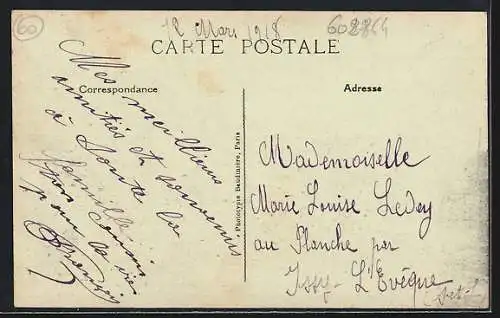 60
12 Mars 1918
608864
CARTE POSTALE
Correspondance
Adresse
Mes meilleurs
amitiés et souvenirs
à toute la
famille
pour la vie
Phototypie Baudinière, Paris
Mademoiselle
Marie Louise Ledey
au Planche par
Issy-L'Evêque